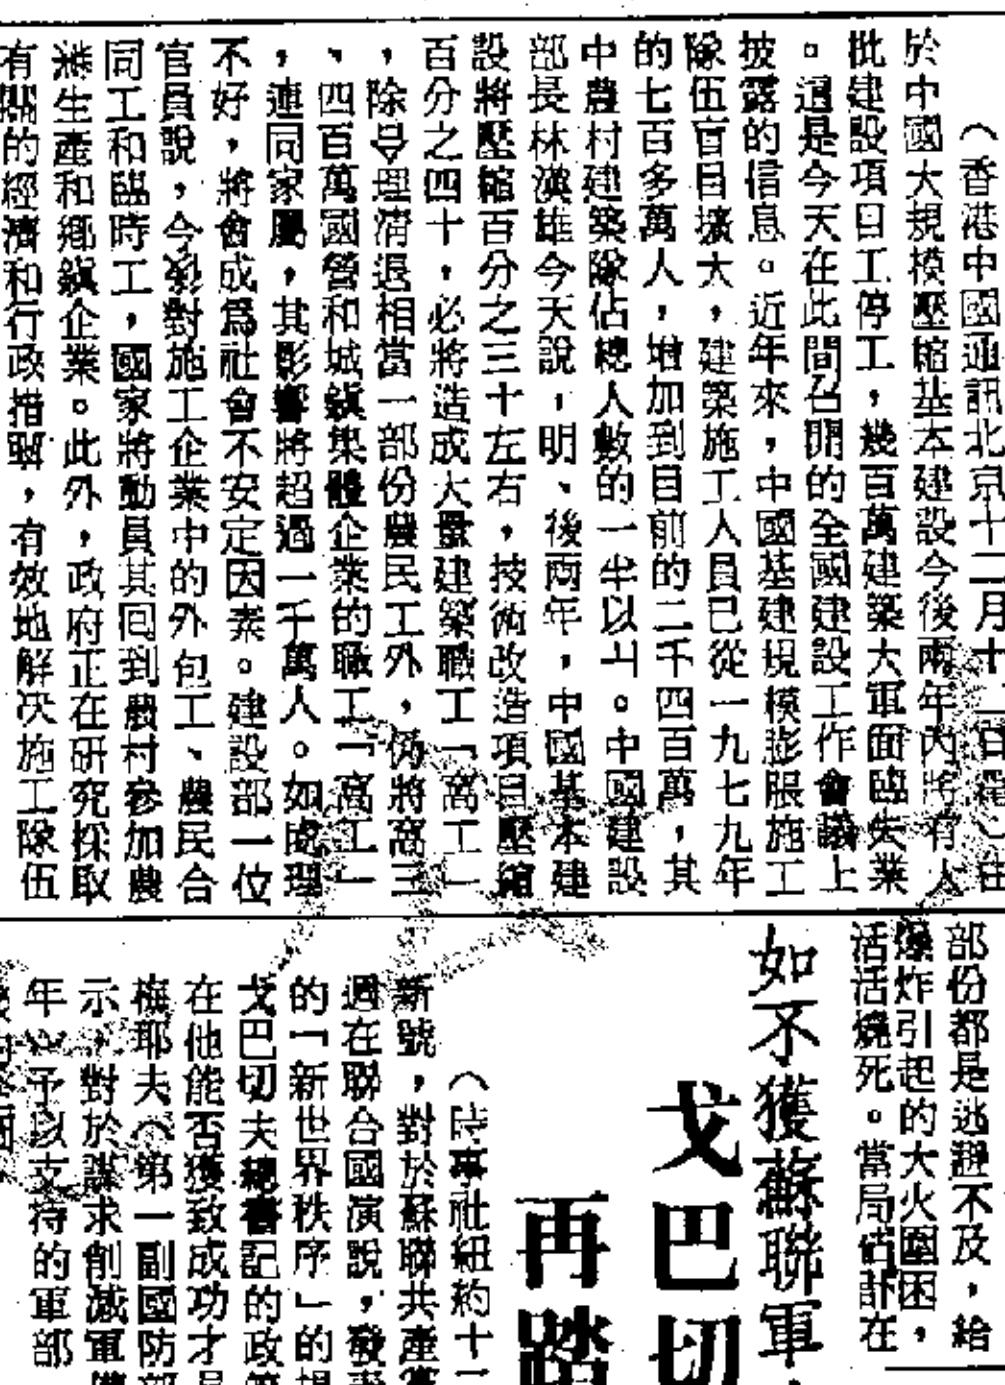 （香港中國通訊北京十二月十一日電）由
於中國大規模壓縮基本建設今後兩年內將有大
批建設項目工停工，幾百萬建築大軍面臨失業
。這是今天在此間召開的全國建設工作會議上
披露的信息。近年來，中國基建規模膨脹施工
隊伍盲目擴大，建築施工人員已從一九七九年
的七百多萬人，增加到目前的二千四百萬，其
中農村建築隊佔總人數的一半以上。中國建設
部長林漢雄今天說，明、後兩年，中國基本建
設將壓縮百分之三十左右，技術改造項目壓縮
百分之四十，必將造成大量建築職工「窩工」
，除 理清退相當一部份農民工外，仍將窩三
、四百萬國營和城鎮集體企業的職工「窩工」
，連同家屬，其影響將超過一千萬人。如處理
不好，將會成為社會不安定因素。建設部一位
官員說，今 對施工企業中的外包工、農民合
同工和臨時工，國家將動員其回到農村參加農
業生產和鄉鎮企業。此外，政府正在研究採取
有關的經濟和行政措施，有效地解決施工隊伍
部份都是逃避不及，給
爆炸引起的大火圍困，
活活燒死。當局估計在
如不獲蘇聯軍
戈巴切
再踏
（時事社紐約十二
新號，對於蘇聯共產黨
週在聯合國演說，發表
的「新世界秩序」的
戈巴切夫總書記的政
在他能否獲致成功才
梅耶夫（第一副國防部
示，對於謀求削減軍
年 予以支持的軍部